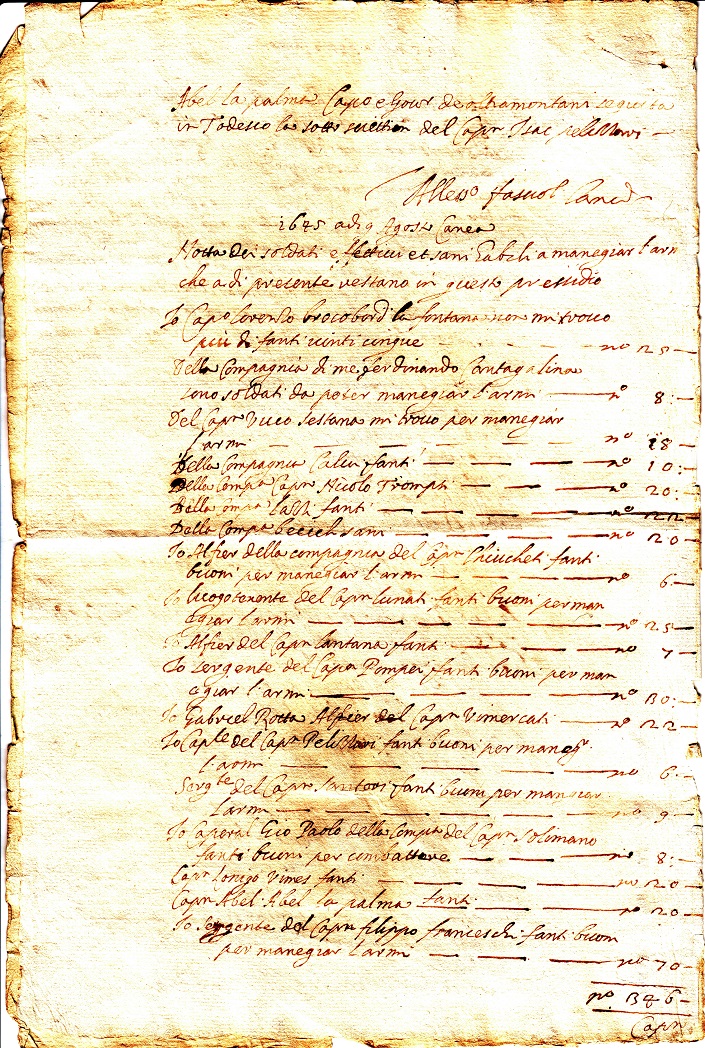 Abel la palma Capo e Gover de oltramontani
in Todesco la sotto del Capn Isac
Alless° Fasuol Canc
1645 adi 9 Agosto Canea
Notta dei soldati effettivi et sani habeli a manegiar l'arm
che a di presente restano in questo pressidio
Io Capo lorenzo brocobordi la fontana non mi trovo
più di fanti vinti cinque no 25
Della Compagnia di me ferdinando Cantagalina
sono soldati da poter manegiar l'armi n° 8
Del Capn Vuco Sestana mi trovo per manegiar
l'armi no 18
Della Compagnia Calin fanti n° 10
Della Compa Capn Nicolo Trompti n° 20
Della compa fanti no 22
Della Compa sani n° 20
Io Alfier della compagnia del Capn Chiucheti fanti
buoni per manegiar l'armi n° 6
Io lucogotenente del Capn lunati fanti buoni per man
egiar l'armi n° 25
Io Alfier del Capn lantana fanti no 7
Io Sergente del Capn Pompei fanti buoni per man
egiar l'armi n° 30
Io Gabriel Rotta Alfier del Capn Vimercati n° 22
Io Caple del Capn Pelizzari fanti buoni per maneg
l'armi no 6
Sergte del Capn Santori fanti buoni per manegiar
l'armi no 9
Io Caporal Gio Paolo della Compa del Capn Solimano
fanti buoni per combattere n° 8
Capn lonigo Vimes fanti no 20
Capn Abel Abel la palma fanti no 20
Io Sergente del Capn filippo franceschi fanti buoni
per manegiar l'armi no 70
n° 346
Capn